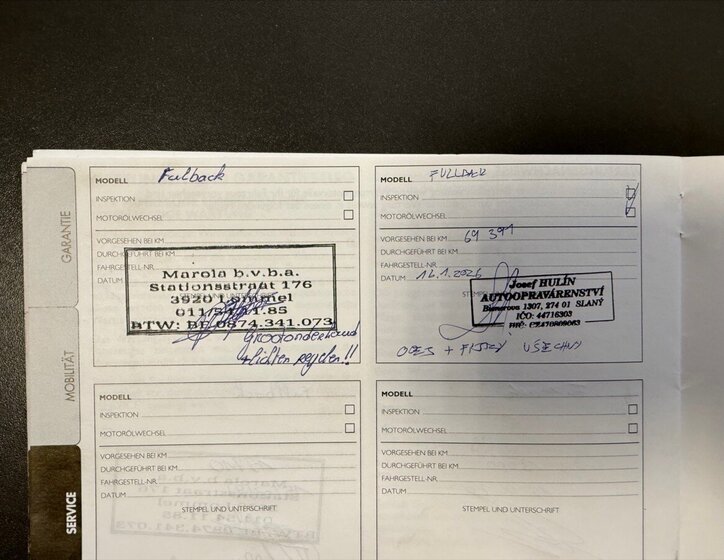 GARANTIE
MOBILITÄT
SERVICE
MODELL Fullback
INSPEKTION
MOTORÖLWECHSEL
VORGESEHEN BEI KM
DURCHGEFÜHRT BEI KM
FAHRGESTELL-NR.
DATUM
Marola b.v.b.a.
Stationsstraat 176
3920 Lommel
011/54.01.85
BTW: BE 0874.341.073
Grootonderhoud
+ lichten regelen!!
MODELL
INSPEKTION
MOTORÖLWECHSEL
VORGESEHEN BEI KM 69 391
DURCHGEFÜHRT BEI KM
FAHRGESTELL-NR.
DATUM
Josef HULÍN
AUTOOPRAVÁRENSTVÍ
1307, 274 01 SLANÝ
IČO: 44716303
MODELL
INSPEKTION
MOTORÖLWECHSEL
VORGESEHEN BEI KM
DURCHGEFÜHRT BEI KM
FAHRGESTELL-NR.
DATUM
STEMPEL UND UNTERSCHRIFT
MODELL
INSPEKTION
MOTORÖLWECHSEL
VORGESEHEN BEI KM
DURCHGEFÜHRT BEI KM
FAHRGESTELL-NR.
DATUM
STEMPEL UND UNTERSCHRIFT